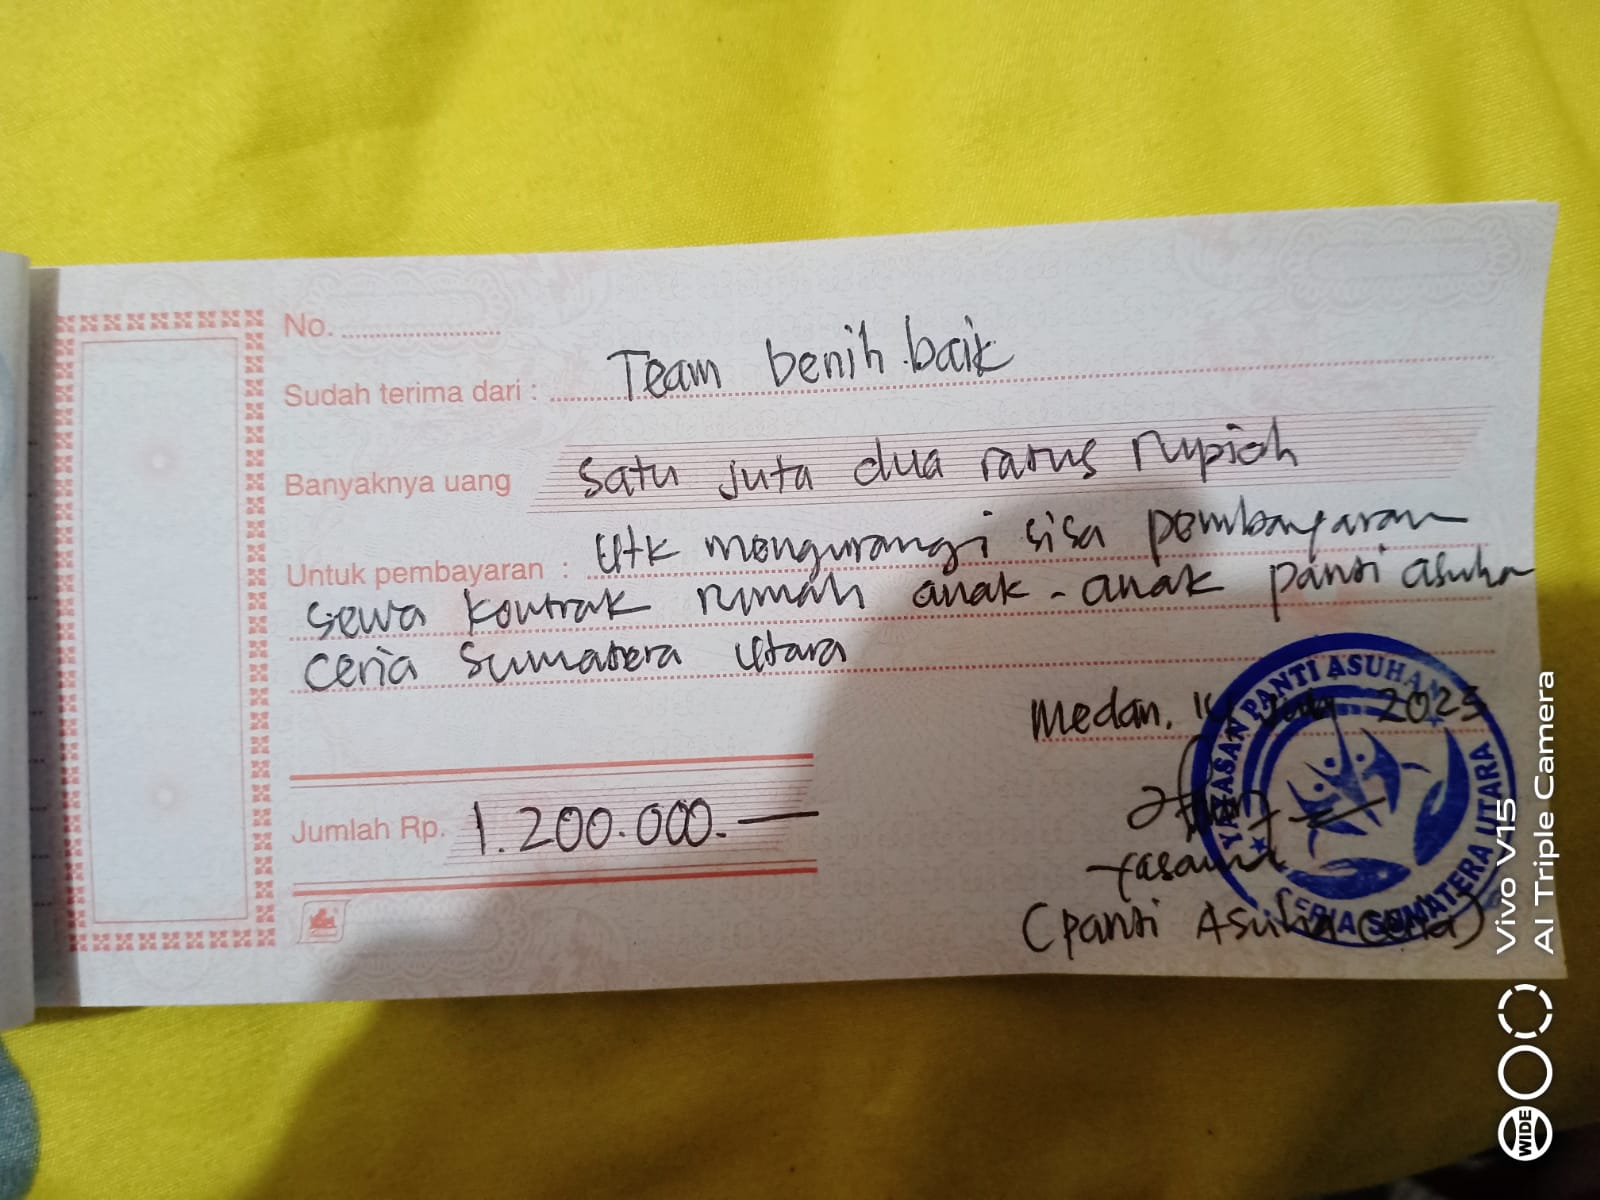 No. ....................
Sudah terima dari : Team benih.baik
Banyaknya uang satu juta dua ratus rupiah
Untuk pembayaran : Utk mengurangi sisa pembayaran
sewa kontrak rumah anak-anak panti asuhan
Ceria Sumatera Utara
Medan, 2023
Jumlah Rp. 1.200.000.—
(Panti Asuhan Ceria)
YAYASAN PANTI ASUHAN
CERIA SUMATERA UTARA
Vivo V15
AI Triple Camera
WIDE